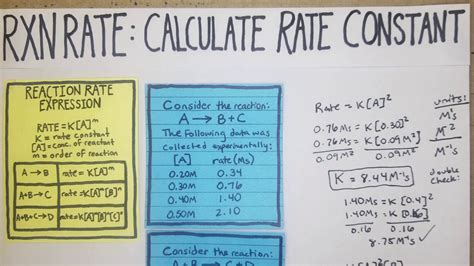 RXN RATE: CALCULATE RATE CONSTANT
REACTION RATE
EXPRESSION
RATE=K[A]^m
K = rate constant
[A]=conc. of reactant
m = order of reaction
A→B rate=K[A]^m
A+B→C rate=K[A]^m[B]^n
A+B+C→D rate=K[A]^m[B]^n[C]^p
Consider the reaction:
A → B + C
The following data was
collected experimentally:
[A] rate (M/s)
0.20M 0.34
0.30M 0.76
0.40M 1.40
0.50M 2.10
Consider the reaction:
Rate = K[A]²
0.76 M/s = K[0.30]²
0.76 M/s = K[0.09M²]
0.09M² 0.09M²
K = 8.44 M⁻¹s⁻¹
units:
M/s
M²
M⁻¹s
double
check:
1.40 M/s = K[0.4]²
1.40 M/s = K[0.16]
0.16 0.16
8.75 M⁻¹s⁻¹